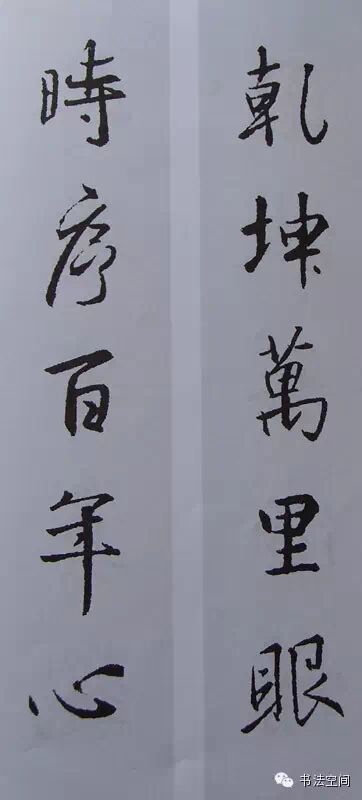 乾坤萬里眼
時序百年心
书法空间